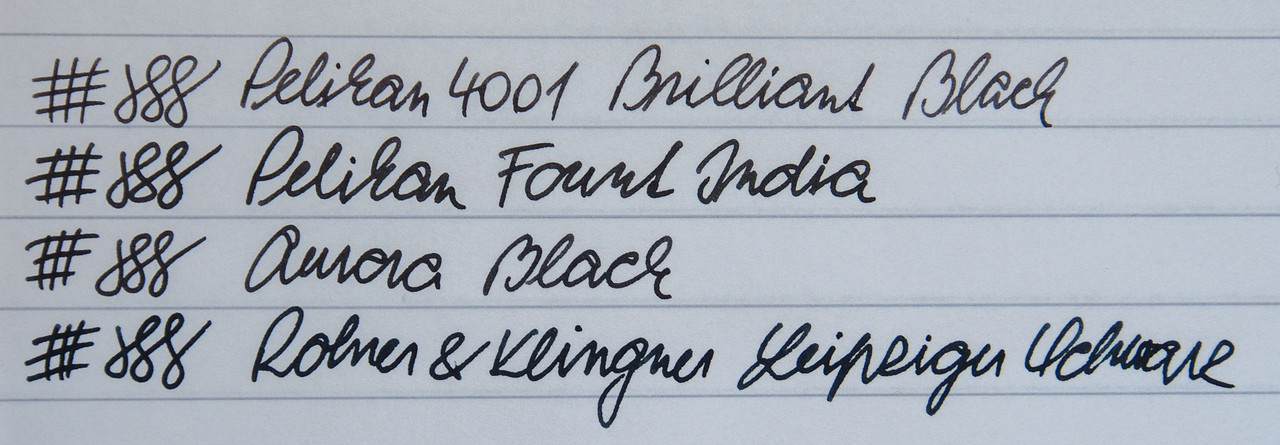 Pelikan 4001 Brilliant Black
Pelikan Fount India
Aurora Black
Rohrer & Klingner Leipziger Schwarz